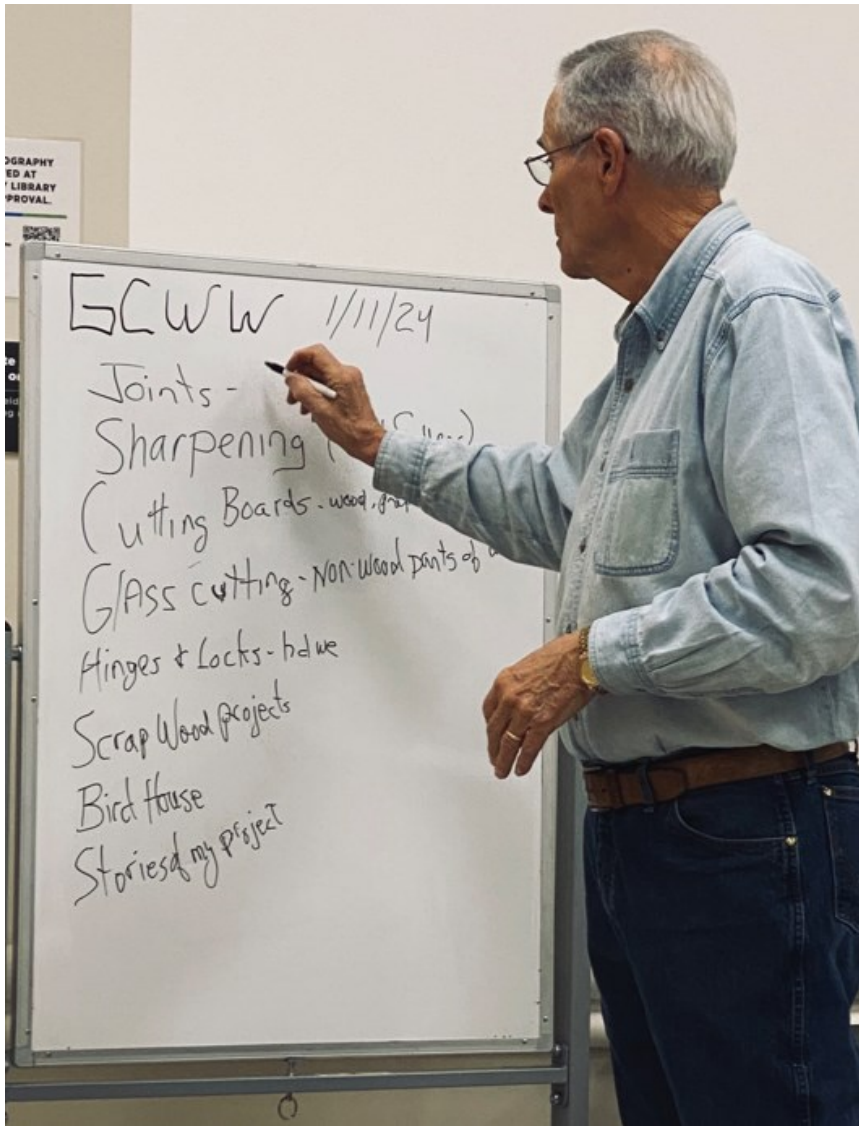 OGRAPHY
ED AT
LIBRARY
PROVAL.
GCWW 1/11/24
Joints -
Sharpening (
Cutting Boards - wood,
Glass cutting - Non-wood parts of
Hinges & Locks - hdwe
Scrap Wood projects
Bird House
Stories of my project